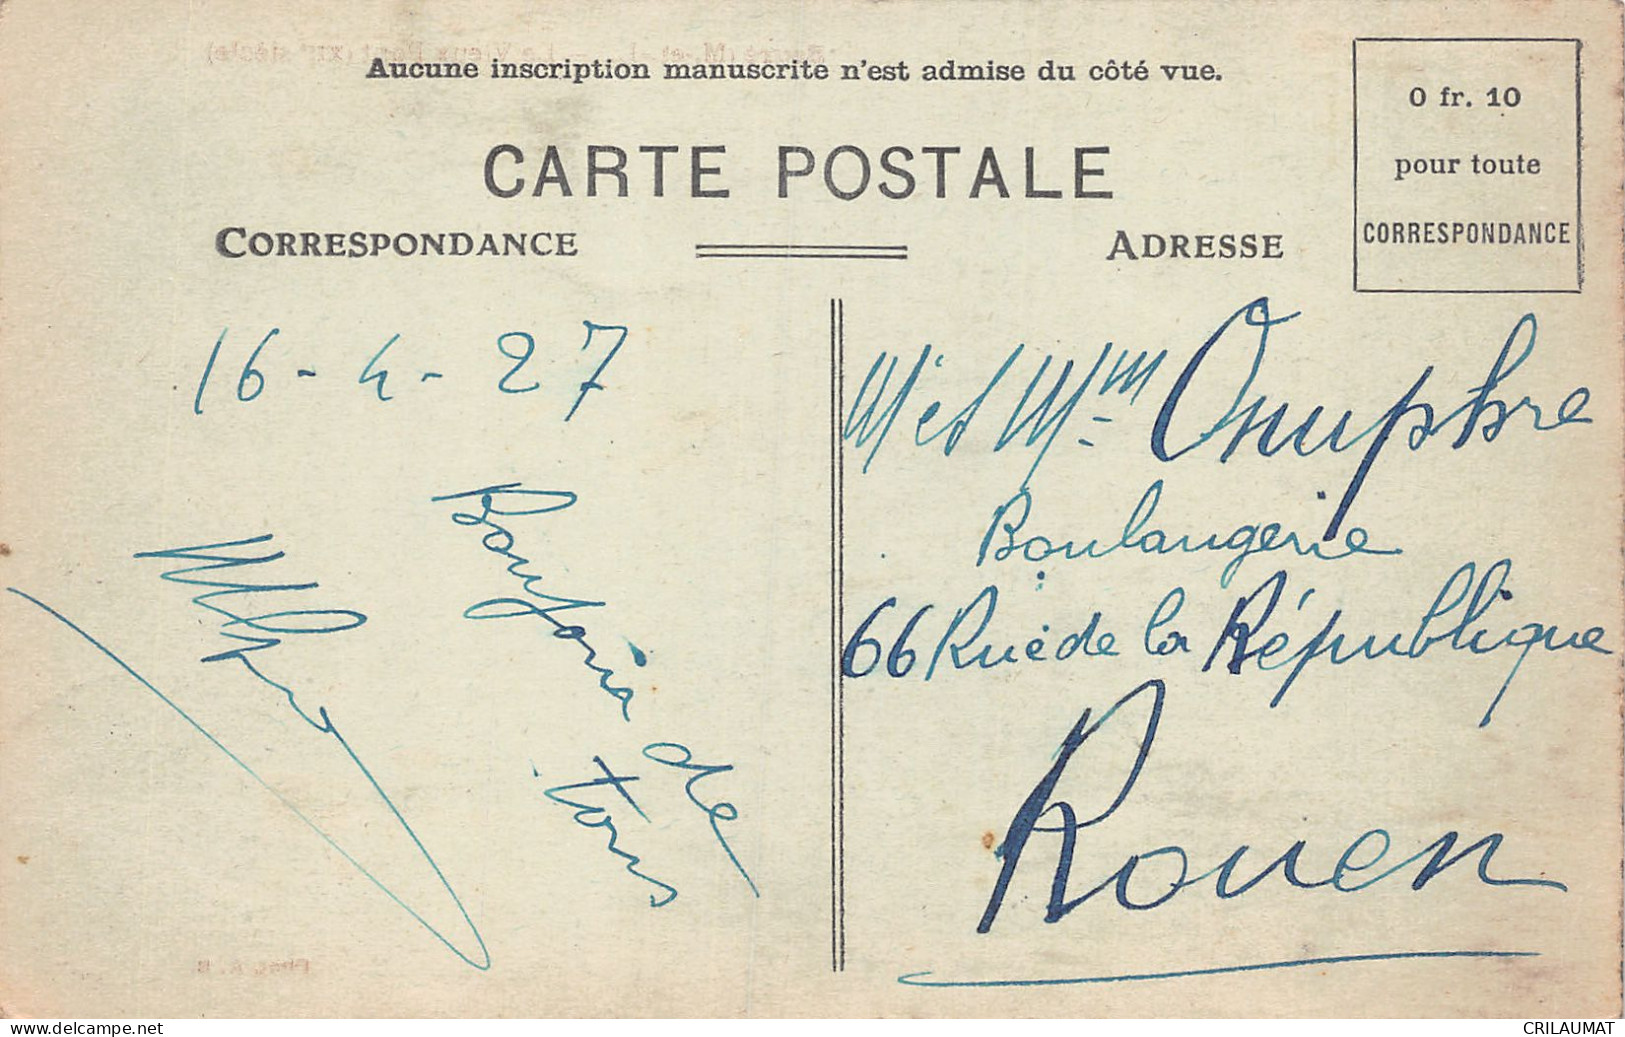 Aucune inscription manuscrite n'est admise du côté vue.
CARTE POSTALE
CORRESPONDANCE
ADRESSE
0 fr. 10
pour toute
CORRESPONDANCE
16 - 4 - 27
Bonjour de
tous
Mr et Mme Onuphre
Boulangerie
66 Rue de la République
Rouen
CRILAUMAT